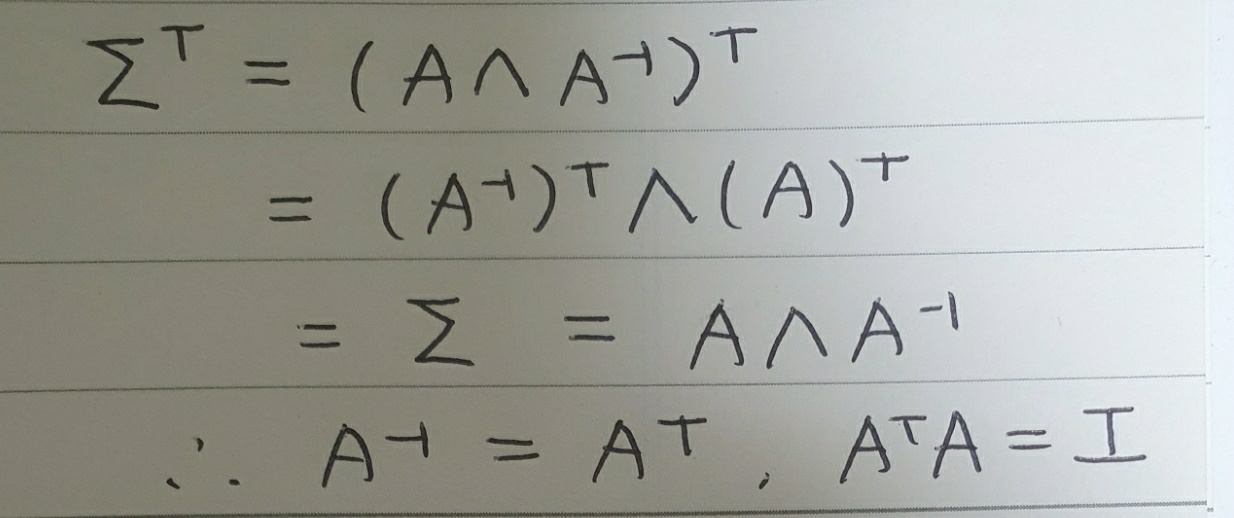 Σᵀ = (A Λ A⁻¹)ᵀ
= (A⁻¹)ᵀ Λ (A)ᵀ
= Σ = A Λ A⁻¹
∴ A⁻¹ = Aᵀ, AᵀA = I